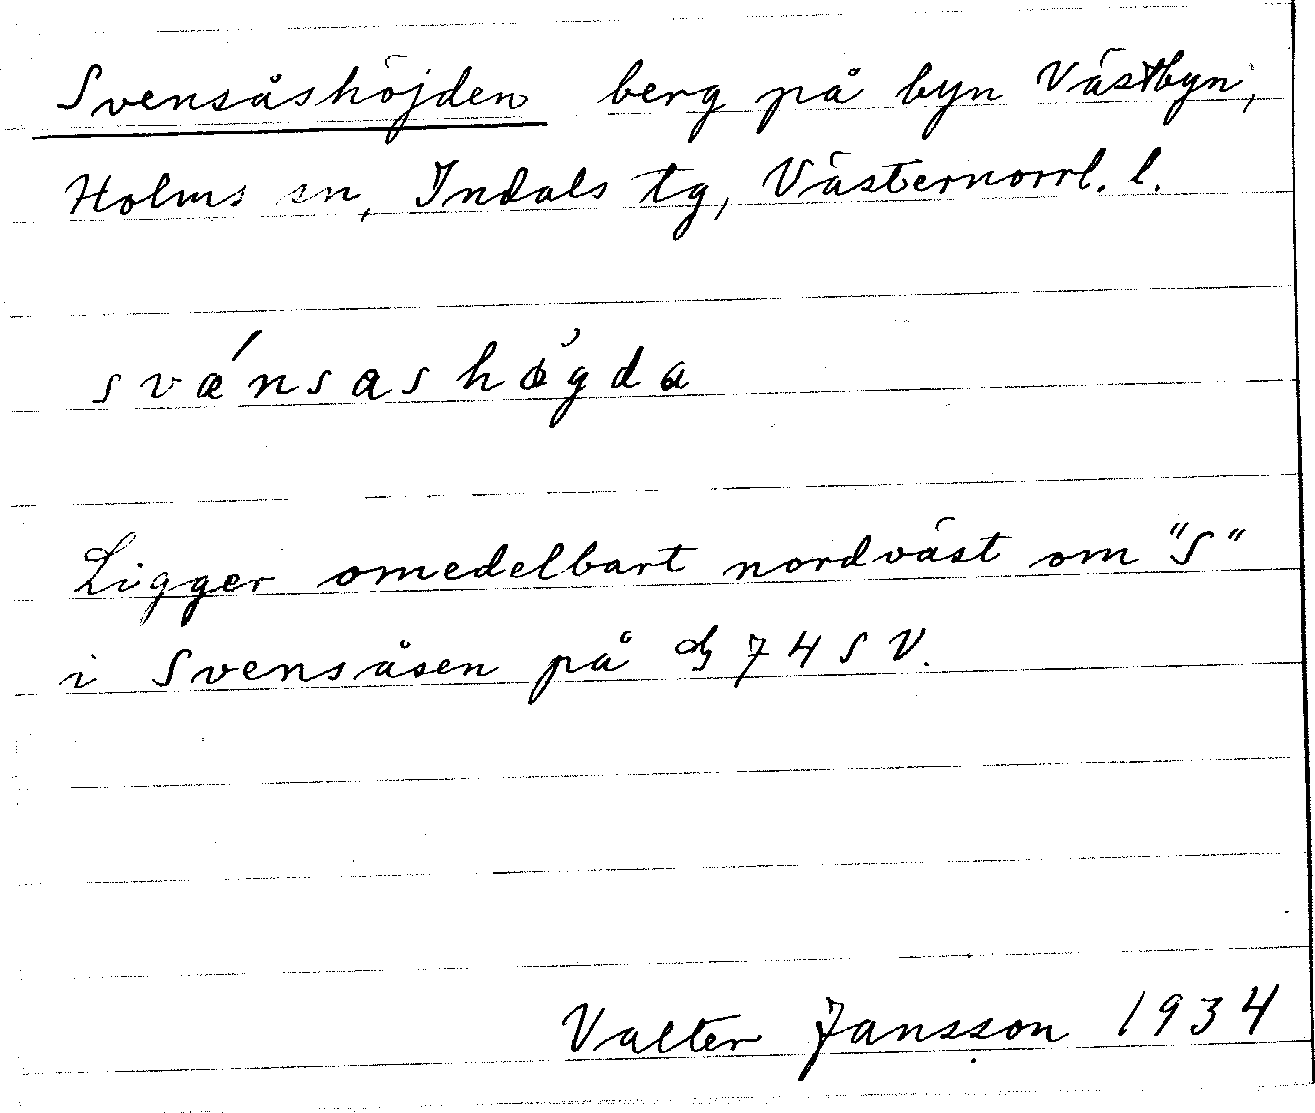 Svensåshöjden berg på byn Västbyn,
Holms sn, Indals tg, Västernorrl. l.
Ligger omedelbart nordväst om "S"
i Svensåsen på 74 S V.
Valter Jansson 1934